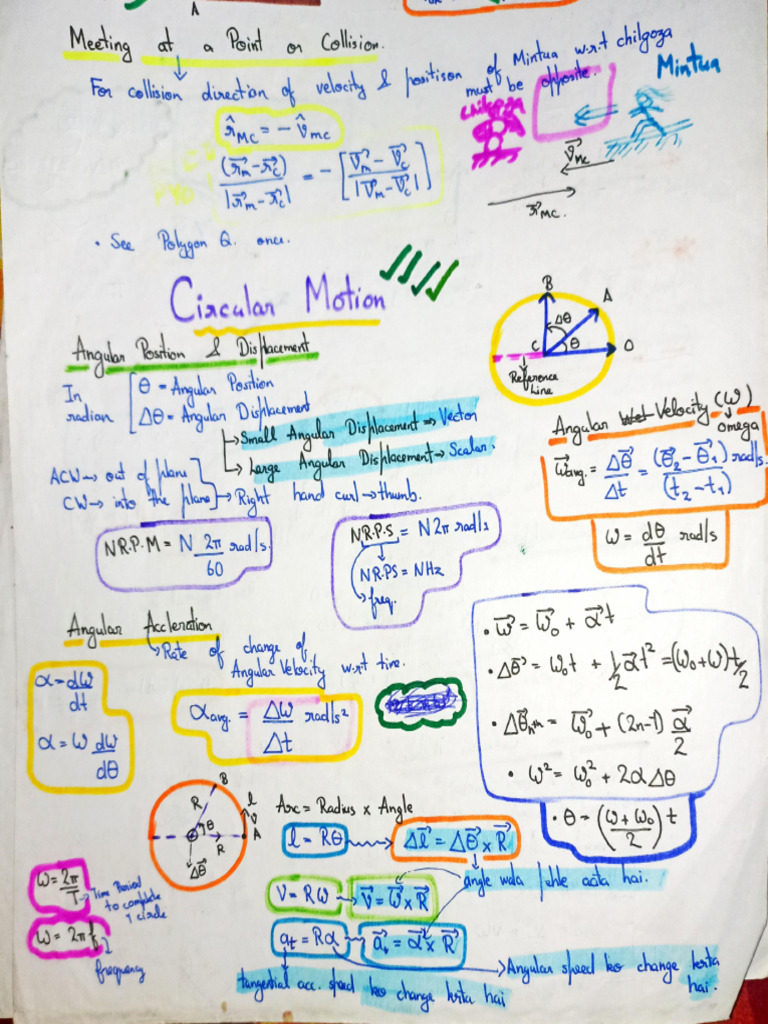 A
Meeting at a Point or Collision.
For collision direction of velocity & position of Mintua w.r.t chilgoza
must be opposite.
Mintua
chilgoza
r̂_MC = - v̂_MC
(r⃗_m - r⃗_c) / |r⃗_m - r⃗_c| = - [ V⃗_m - V⃗_c / |V⃗_m - V⃗_c| ]
V⃗_MC
r⃗_MC.
• See Polygon Q. once.
Circular Motion
B
A
Δθ
θ
C
O
Reference
Line
Angular Position & Displacement
In
radian
θ = Angular Position
Δθ = Angular Displacement
→ Small Angular Displacement ⇒ Vector
→ Large Angular Displacement → Scalar.
ACW → out of plane
CW → into the plane
→ Right hand curl → thumb.
Angular Velocity (ω)
omega
ω⃗_avg. = Δθ⃗ / Δt = (θ⃗₂ - θ⃗₁) / (t₂ - t₁) rad/s.
ω = dθ/dt rad/s
N R.P.M = N 2π/60 rad/s.
N R.P.S = N 2π rad/s
N R.P.S = N Hz
freq.
Angular Accleration
→ Rate of change of
Angular Velocity w.r.t time.
α = dω/dt
α = ω dω/dθ
α_avg. = Δω/Δt rad/s²
• ω⃗ = ω⃗₀ + α⃗t
• Δθ⃗ = ω₀t + 1/2 α⃗t² = (ω₀+ω)t/2
• Δθ⃗_nth = ω⃗₀ + (2n-1) α⃗/2
• ω² = ω₀² + 2αΔθ
• θ = (ω + ω₀ / 2) t
B
R
θ
l
V
A
R
Δθ⃗
Arc = Radius × Angle
l = Rθ
Δl⃗ = Δθ⃗ × R⃗
angle wala pehle aata hai.
V = Rω → V⃗ = ω⃗ × R⃗
a_t = Rα
a⃗_t = α⃗ × R⃗
ω = 2π/T
Time Period
to complete
1 circle
ω = 2πf
frequency
→ Angular speed ko change krta
hai.
tangential acc. speed ko change krta hai